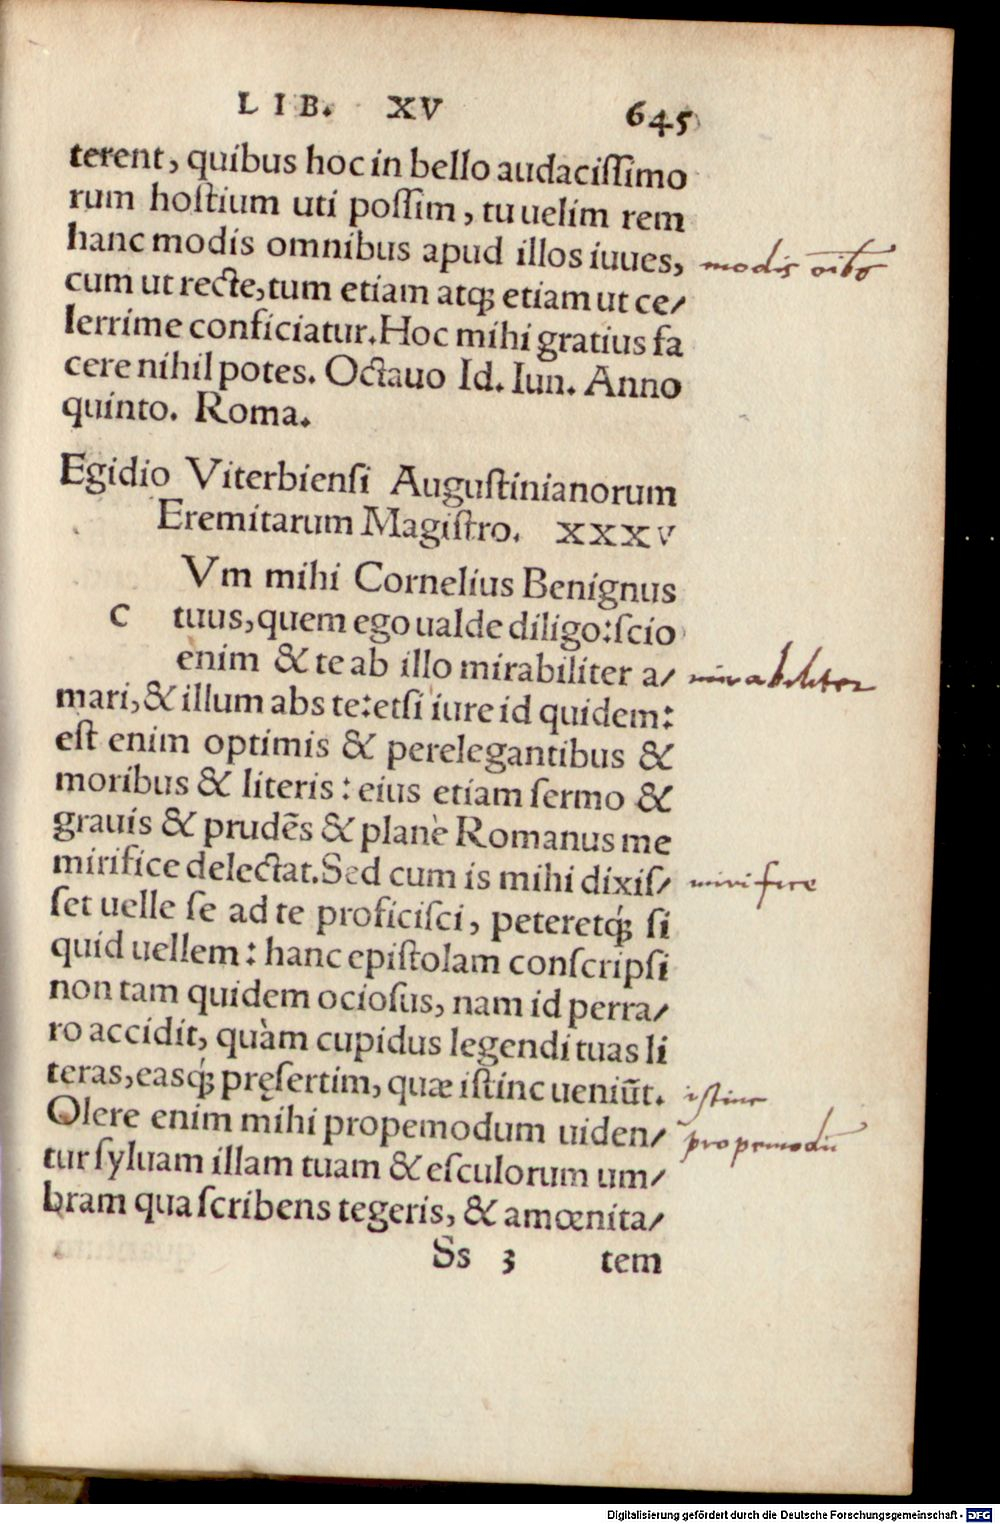 LIB. XV 645
terent, quibus hoc in bello audacissimo
rum hostium uti possim, tu uelim rem
hanc modis omnibus apud illos iuues,
modis oībo
cum ut recte, tum etiam atqꝫ etiam ut ce/
lerrime conficiatur. Hoc mihi gratius fa
cere nihil potes. Octauo Id. Iun. Anno
quinto. Roma.
Egidio Viterbiensi Augustinianorum
Eremitarum Magistro. XXXV
Vm mihi Cornelius Benignus
C tuus, quem ego ualde diligo: scio
enim & te ab illo mirabiliter a/
mirabiliter
mari, & illum abs te: etsi iure id quidem:
est enim optimis & perelegantibus &
moribus & literis: eius etiam sermo &
grauis & prudēs & planè Romanus me
mirifice delectat. Sed cum is mihi dixis/
mirifice
set uelle se ad te proficisci, peteretq́ꝫ si
quid uellem: hanc epistolam conscripsi
non tam quidem ociosus, nam id perra/
ro accidit, quàm cupidus legendi tuas li
teras, easq́ꝫ pręsertim, quæ istinc ueniūt.
istinc
Olere enim mihi propemodum uiden/
propemodū
tur syluam illam tuam & esculorum um/
bram qua scribens tegeris, & amœnita/
Ss 3 tem
Digitalisierung gefördert durch die Deutsche Forschungsgemeinschaft - DFG